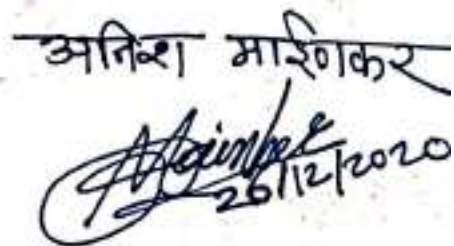 अनिश माईणकर
26/12/2020